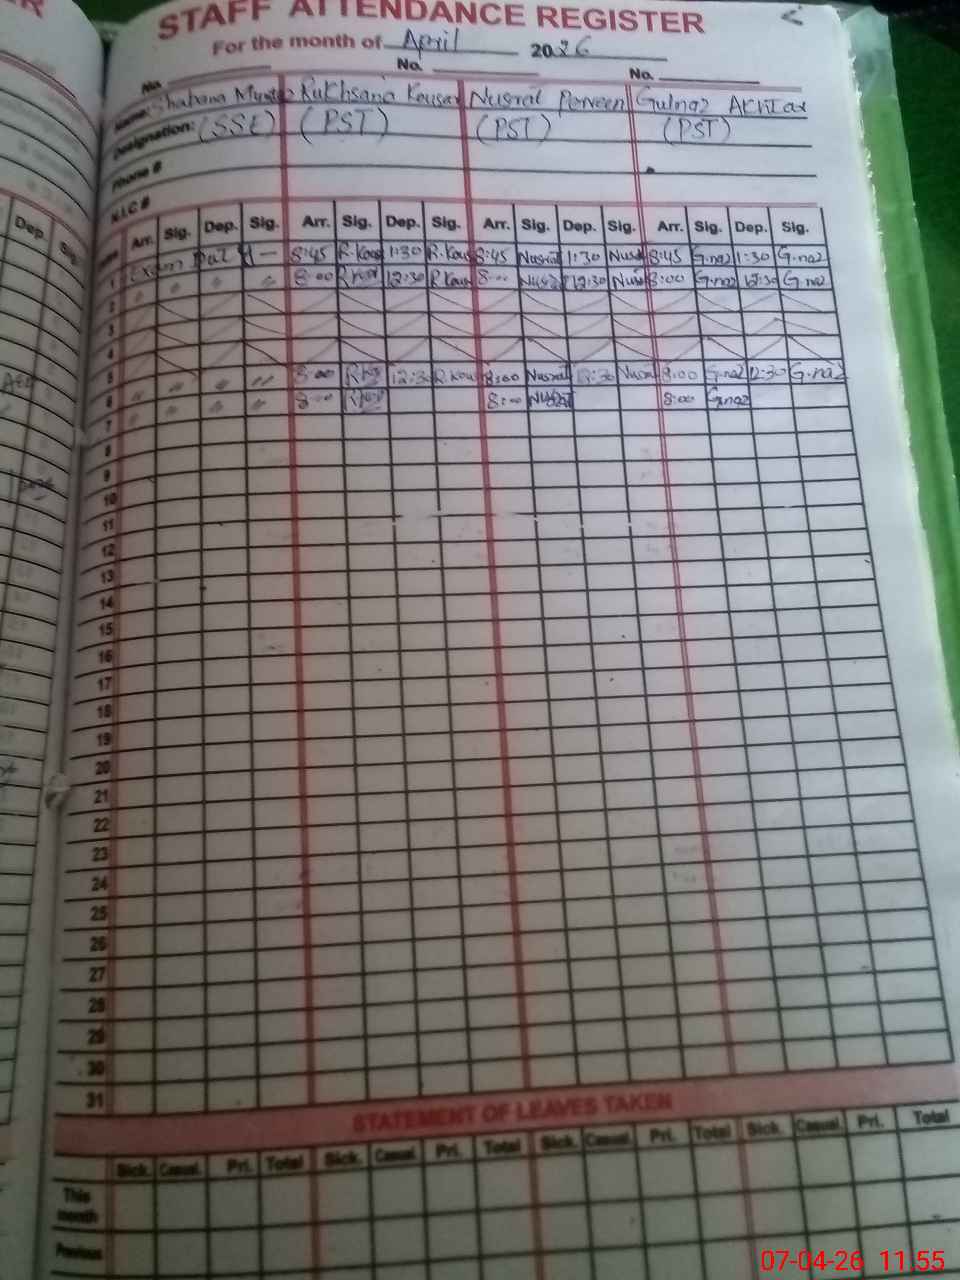 STAFF ATTENDANCE REGISTER
For the month of April 2026
No. No. No.
Name: Shabana Rukhsana Kousar Nusrat Parveen Gulnaz Akhtar
Designation: (SSE) (PST) (PST) (PST)
Phone #
N.I.C #
Arr. Sig. Dep. Sig. Arr. Sig. Dep. Sig. Arr. Sig. Dep. Sig. Arr. Sig. Dep. Sig.
1 Exam 8:45 R.Kous 1:30 R.Kous 8:45 Nusrat 1:30 Nus 8:45 G.naz 1:30 G.naz
2 " " " " 8:00 12:30 R Kous 8:00 12:30 8:00 G.naz 12:30 G.naz
3
4
5
6 " " " 8:00 12:30 R.Kou 8:00 Nusrat 12:30 Nusrat 8:00 G.naz 12:30 G.naz
7 " " " 8:00 8:00 Nusrat 8:00 G.naz
8
9
10
11
12
13
14
15
16
17
18
19
20
21
22
23
24
25
26
27
28
29
30
31
STATEMENT OF LEAVES TAKEN
Sick. Casual. Pri. Total Sick. Casual. Pri. Total Sick. Casual. Pri. Total Sick. Casual. Pri. Total
This month
Previous
07-04-26 11:55